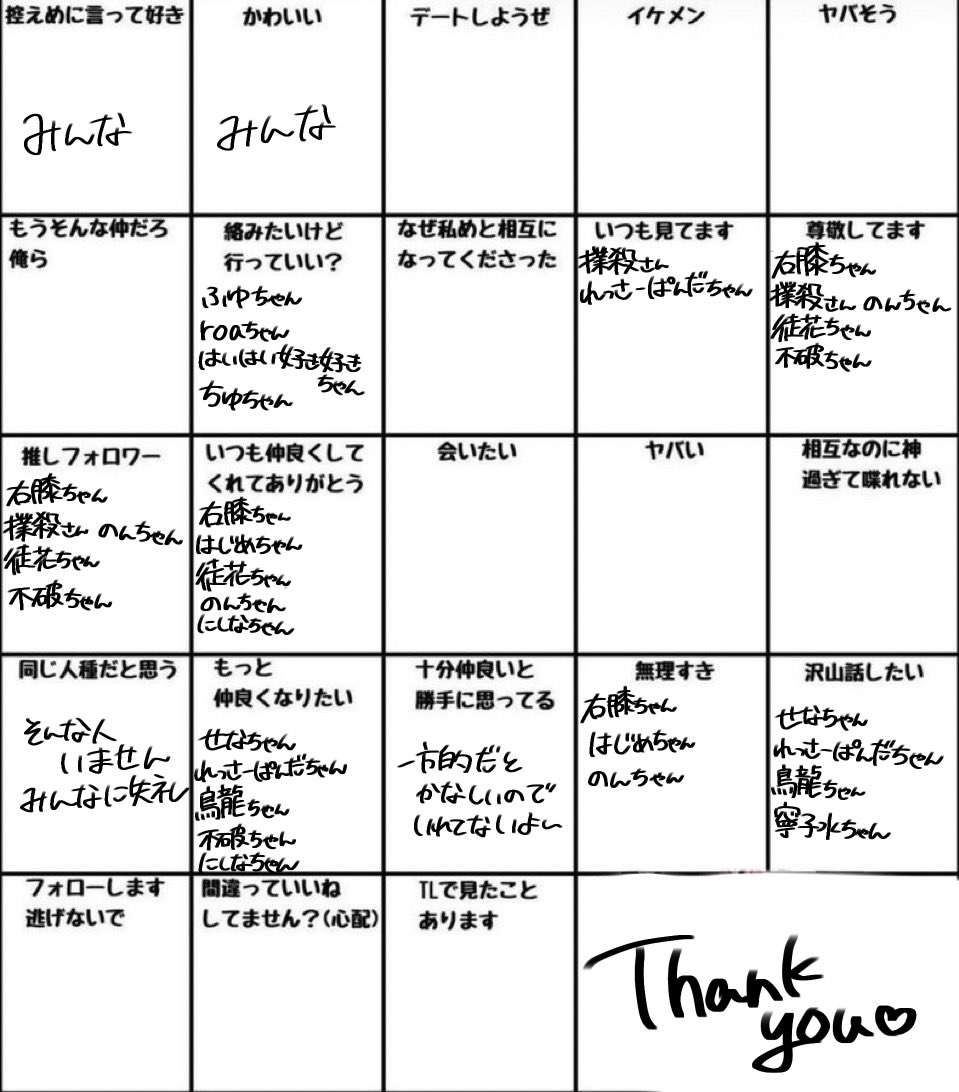 控えめに言って好き
みんな
かわいい
みんな
デートしようぜ
イケメン
ヤバそう
もうそんな仲だろ
俺ら
絡みたいけど
行っていい?
ふゆちゃん
roaちゃん
はいはい好き好き
ちゃん
ちゆちゃん
なぜ私めと相互に
なってくださった
いつも見てます
撲殺さん
れっさーぱんだちゃん
尊敬してます
右膝ちゃん
撲殺さん のんちゃん
徒花ちゃん
不破ちゃん
推しフォロワー
右膝ちゃん
撲殺さん のんちゃん
徒花ちゃん
不破ちゃん
いつも仲良くして
くれてありがとう
右膝ちゃん
はじめちゃん
徒花ちゃん
のんちゃん
にしなちゃん
会いたい
ヤバい
相互なのに神
過ぎて喋れない
同じ人種だと思う
そんな人
いません
みんなに失礼
もっと
仲良くなりたい
せなちゃん
れっさーぱんだちゃん
烏龍ちゃん
不破ちゃん
にしなちゃん
十分仲良いと
勝手に思ってる
一方的だと
かなしいので
いれてないよい
無理すき
右膝ちゃん
はじめちゃん
のんちゃん
沢山話したい
せなちゃん
れっさーぱんだちゃん
烏龍ちゃん
寧子水ちゃん
フォローします
逃げないで
間違っていいね
してません?(心配)
TLで見たこと
あります
Thank
you♡